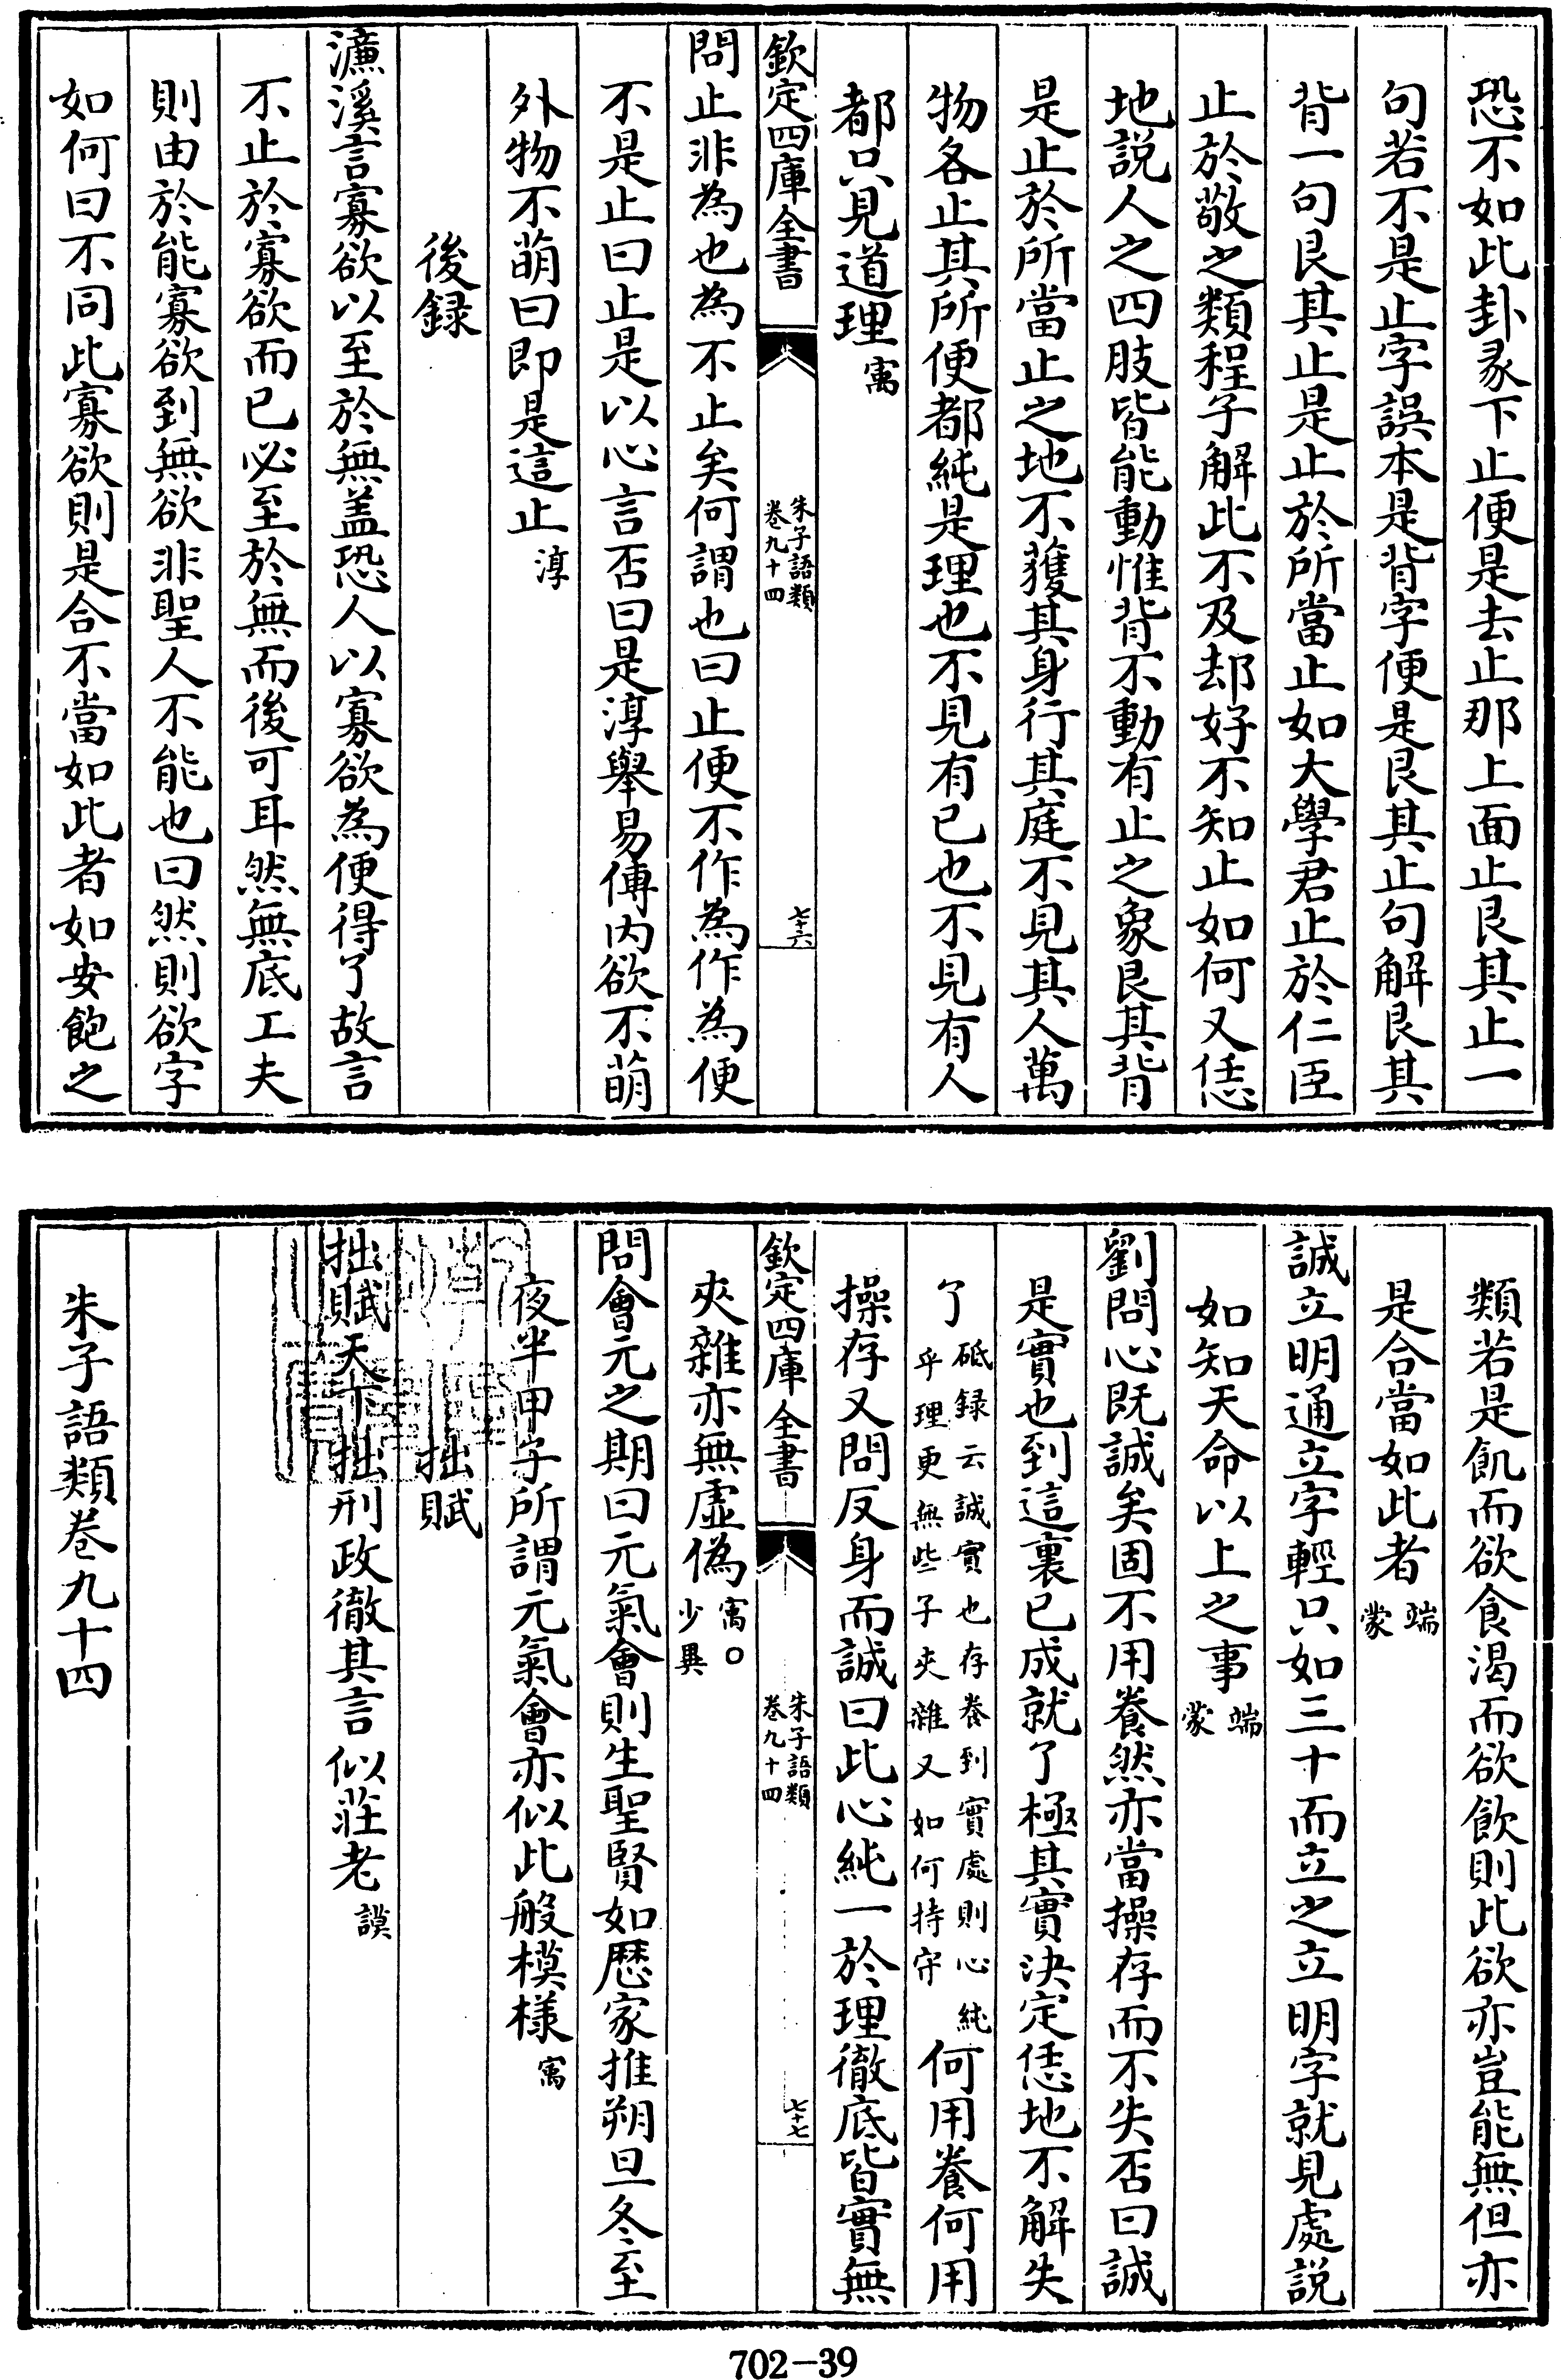 恐不如此卦彖下止便是去止那上面止艮其止一
句若不是止字誤本是背字便是艮其止句解艮其
背一句艮其止是止於所當止如大學君止於仁臣
止於敬之類程子解此不及却好不知止如何又恁
地説人之四肢皆能動惟背不動有止之象艮其背
是止於所當止之地不獲其身行其庭不見其人萬
物各止其所便都純是理也不見有已也不見有人
都只見道理寓
欽定四庫全書
朱子語類
卷九十四
七十六
問止非為也為不止矣何謂也曰止便不作為作為便
不是止曰止是以心言否曰是淳舉易傳内欲不萌
外物不萌曰即是這止淳
後録
濓溪言寡欲以至於無盖恐人以寡欲為便得了故言
不止於寡欲而已必至於無而後可耳然無底工夫
則由於能寡欲到無欲非聖人不能也曰然則欲字
如何曰不同此寡欲則是合不當如此者如安飽之
類若是飢而欲食渴而欲飲則此欲亦豈能無但亦
是合當如此者端蒙
誠立明通立字輕只如三十而立之立明字就見處説
如知天命以上之事端蒙
劉問心既誠矣固不用養然亦當操存而不失否曰誠
是實也到這裏已成就了極其實決定恁地不解失
了砥録云誠實也存養到實處則心純乎理更無些子夾雜又如何持守何用養何用
操存又問反身而誠曰此心純一於理徹底皆實無
欽定四庫全書
朱子語類
卷九十四
七十七
夾雜亦無虛偽寓○少異
問會元之期曰元氣會則生聖賢如厯家推朔旦冬至
夜半甲子所謂元氣會亦似此般模様寓
拙賦
拙賦天下拙刑政徹其言似莊老謨
朱子語類卷九十四
702-39